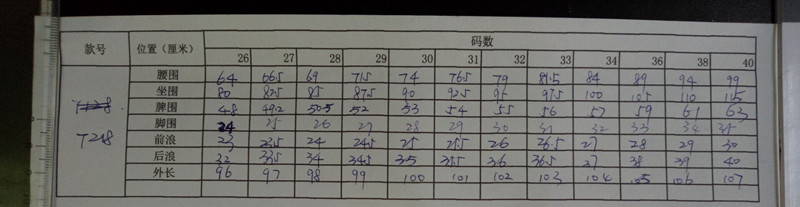 款号 位置（厘米） 码数
26 27 28 29 30 31 32 33 34 36 38 40
腰围 64 66.5 69 71.5 74 76.5 79 81.5 84 89 94 99
坐围 80 82.5 85 87.5 90 92.5 95 97.5 100 105 110 115
脾围 48 49.2 50.5 52 53 54 55 56 57 59 61 63
脚围 24 25 26 27 28 29 30 31 32 33 34 35
T248 前浪 23 23.5 24 24.5 25 25.5 26 26.5 27 28 29 30
后浪 33 33.5 34 34.5 35 35.5 36 36.5 37 38 39 40
外长 96 97 98 99 100 101 102 103 104 105 106 107